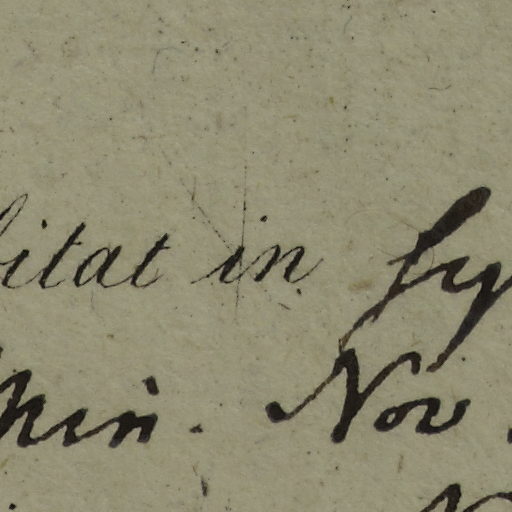 bitat in Sy
hin. Nov.